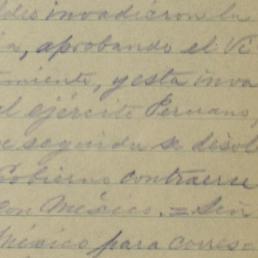 invadieron la
aprobando el Vi
y esta inva
el ejército Peruano,
seguida se disol
Gobierno contraerse
con México. = Sen
México para corresp